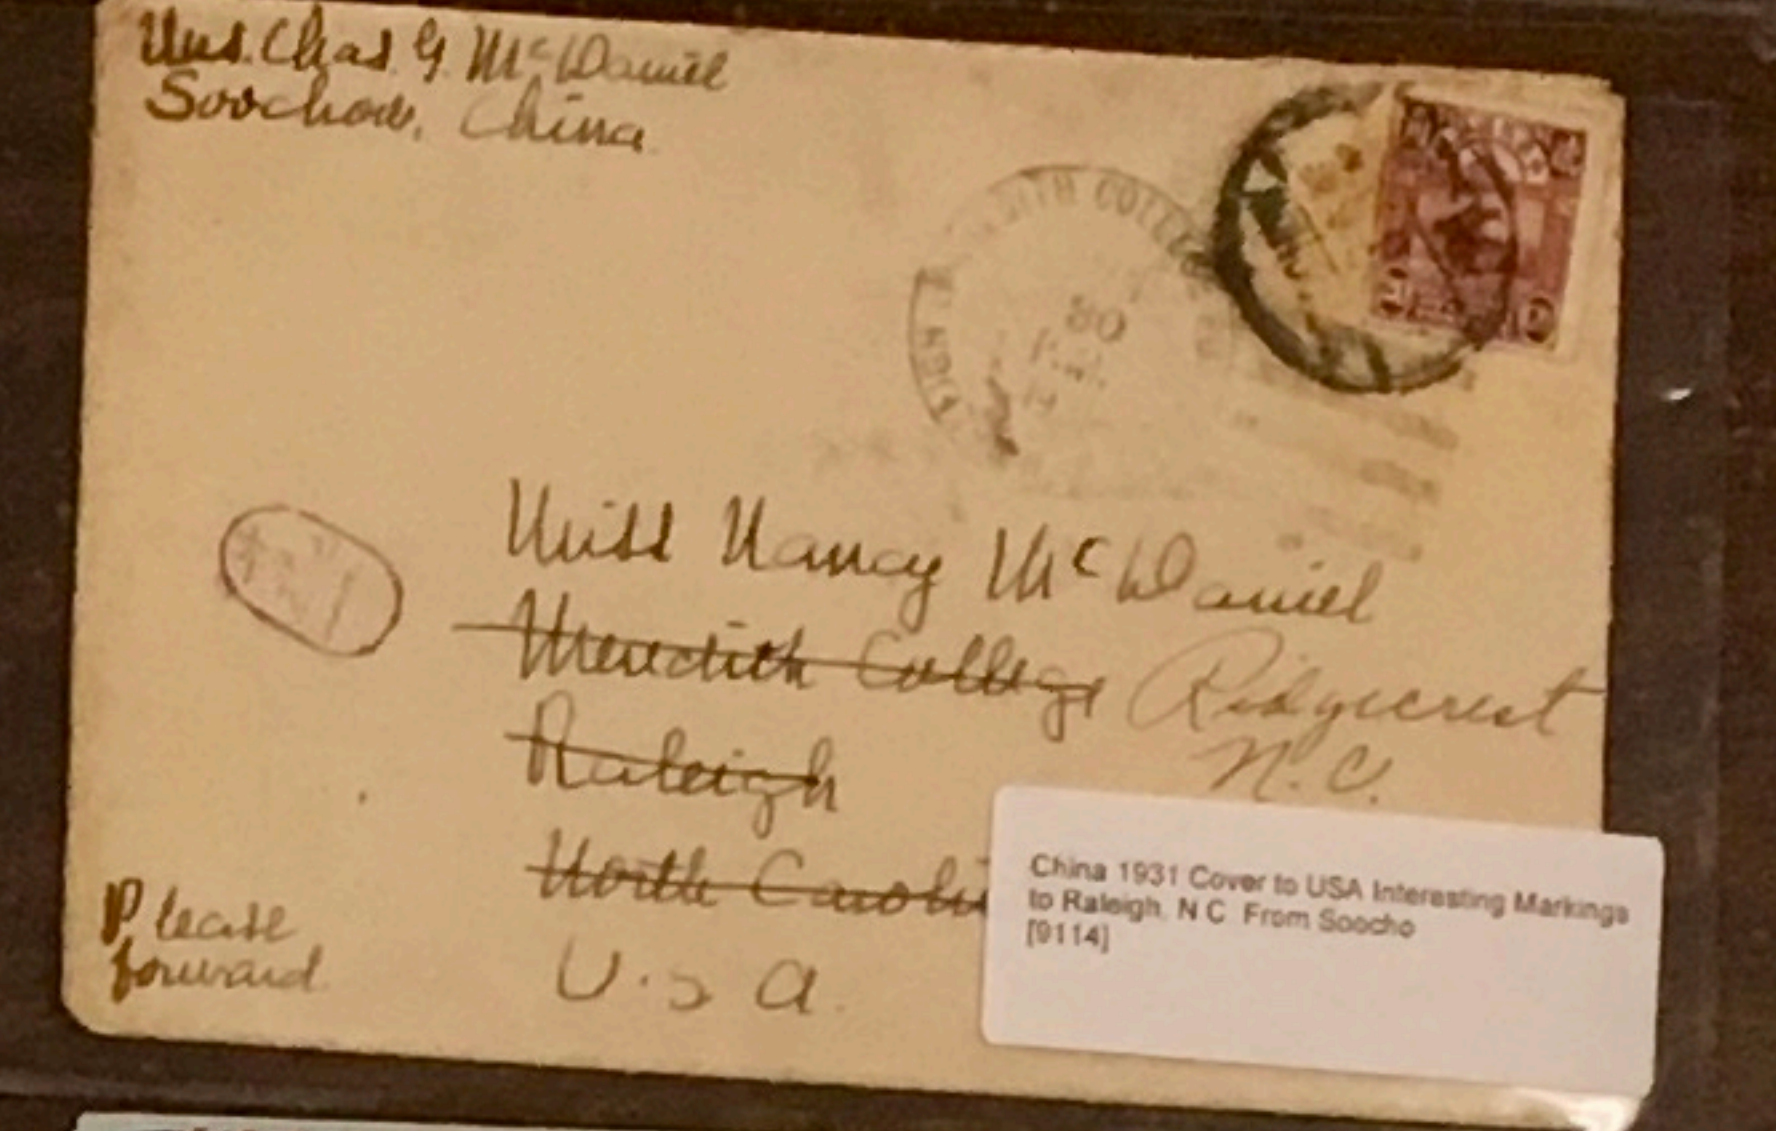 Mrs. Chas. G. McDaniel
Soochow, China
COLLEGE
Miss Nancy McDaniel
Meredith College Ridgecrest
Raleigh N.C.
North Caroli
U.S.A.
Please
forward
China 1931 Cover to USA Interesting Markings
to Raleigh, N C From Soocho
[9114]